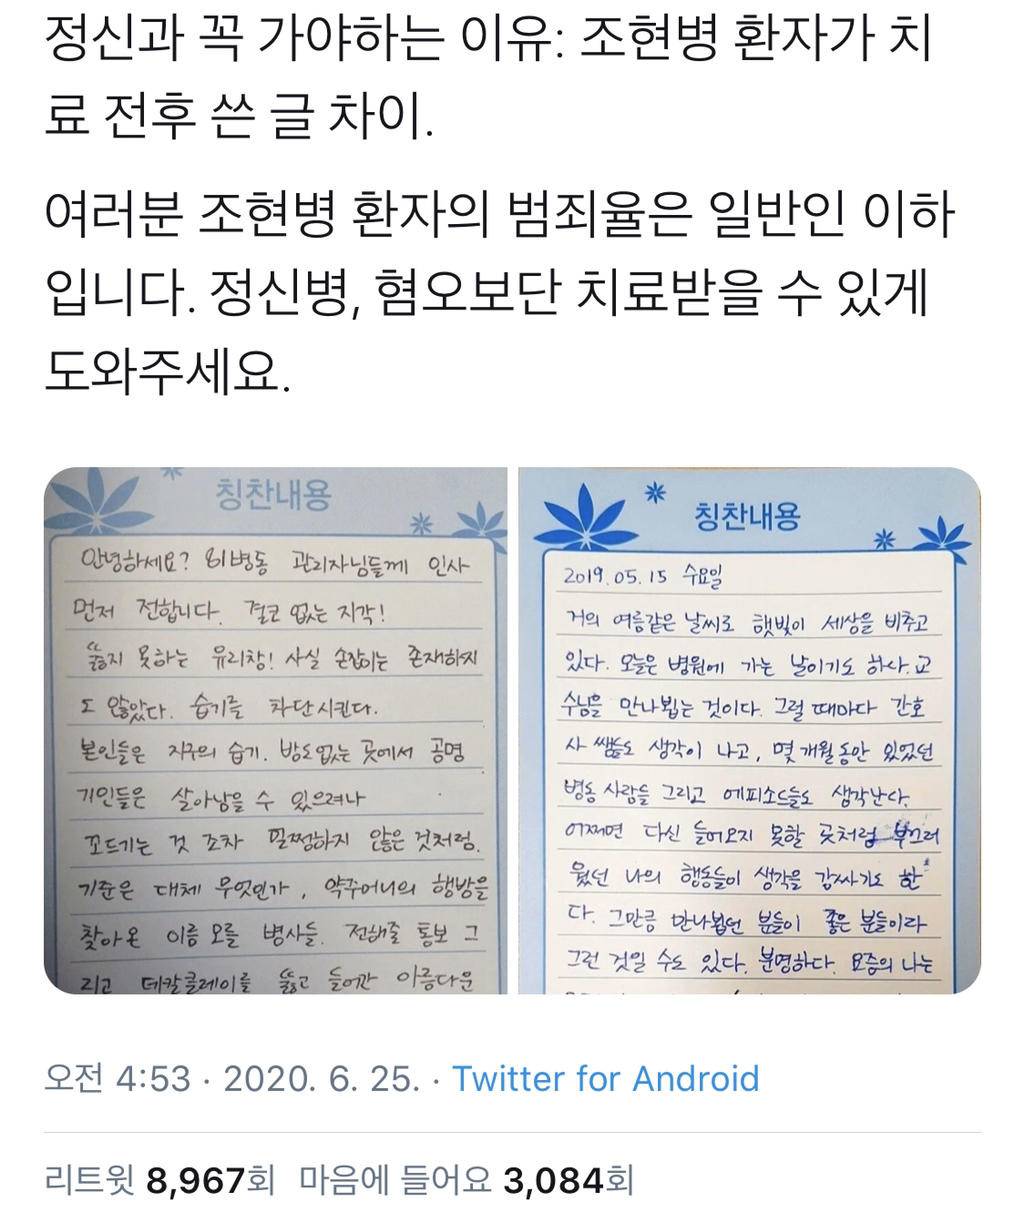 정신과 꼭 가야하는 이유: 조현병 환자가 치
료 전후 쓴 글 차이.
여러분 조현병 환자의 범죄율은 일반인 이하
입니다. 정신병, 혐오보단 치료받을 수 있게
도와주세요.
칭찬내용
안녕하세요? 81병동 관리자님들께 인사
먼저 전합니다. 결코 없는 지각!
뚫지 못하는 유리창! 사실 손잡이는 존재하지
도 않았다. 습기를 차단시킨다.
본인들은 지구의 습기. 밤도 없는 곳에서 공명
기인들은 살아남을 수 있으려나
꼬드기는 것 조차 멀쩡하지 않은 것처럼.
기준은 대체 무엇인가, 약주머니의 행방을
찾아온 이름 모를 병사들. 전해줄 통보 그
리고 데칼클레이를 뚫고 들어간 아름다운
칭찬내용
2019.05.15 수요일
거의 여름같은 날씨로 햇빛이 세상을 비추고
있다. 오늘은 병원에 가는 날이기도 하다. 교
수님을 만나뵙는 것이다. 그럴 때마다 간호
사 쌤들도 생각이 나고, 몇 개월동안 있었던
병동 사람들 그리고 에피소드들도 생각난다.
어쩌면 다신 들어오지 못할 곳처럼 부끄러
웠던 나의 행동들이 생각을 감싸기도 한
다. 그만큼 만나뵙던 분들이 좋은 분들이라
그런 것일 수도 있다. 분명하다. 요즘의 나는
오전 4:53 · 2020. 6. 25. · Twitter for Android
리트윗 8,967회 마음에 들어요 3,084회